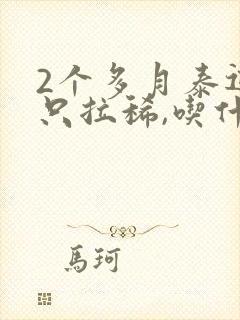 2个多月泰迪
只拉稀,喫什
馬珂